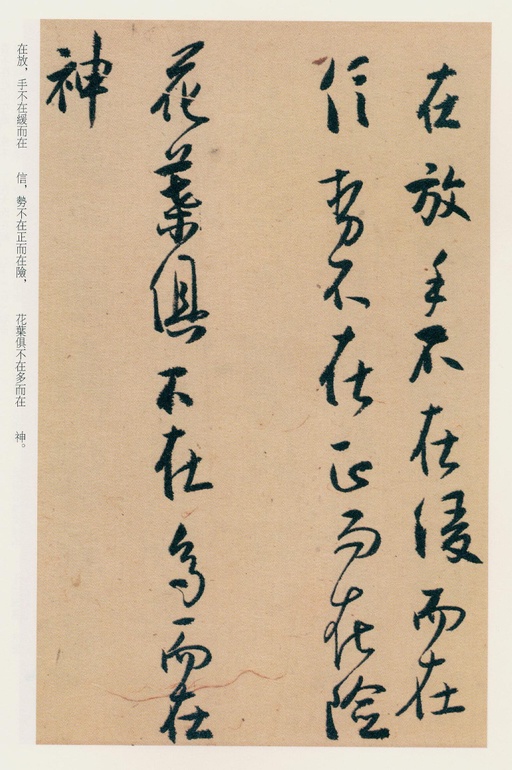 在放手不在緩而在
信勢不在正而在險
花葉俱不在多而在
神
在放，手不在緩而在　信，勢不在正而在險，　花葉俱不在多而在　神。